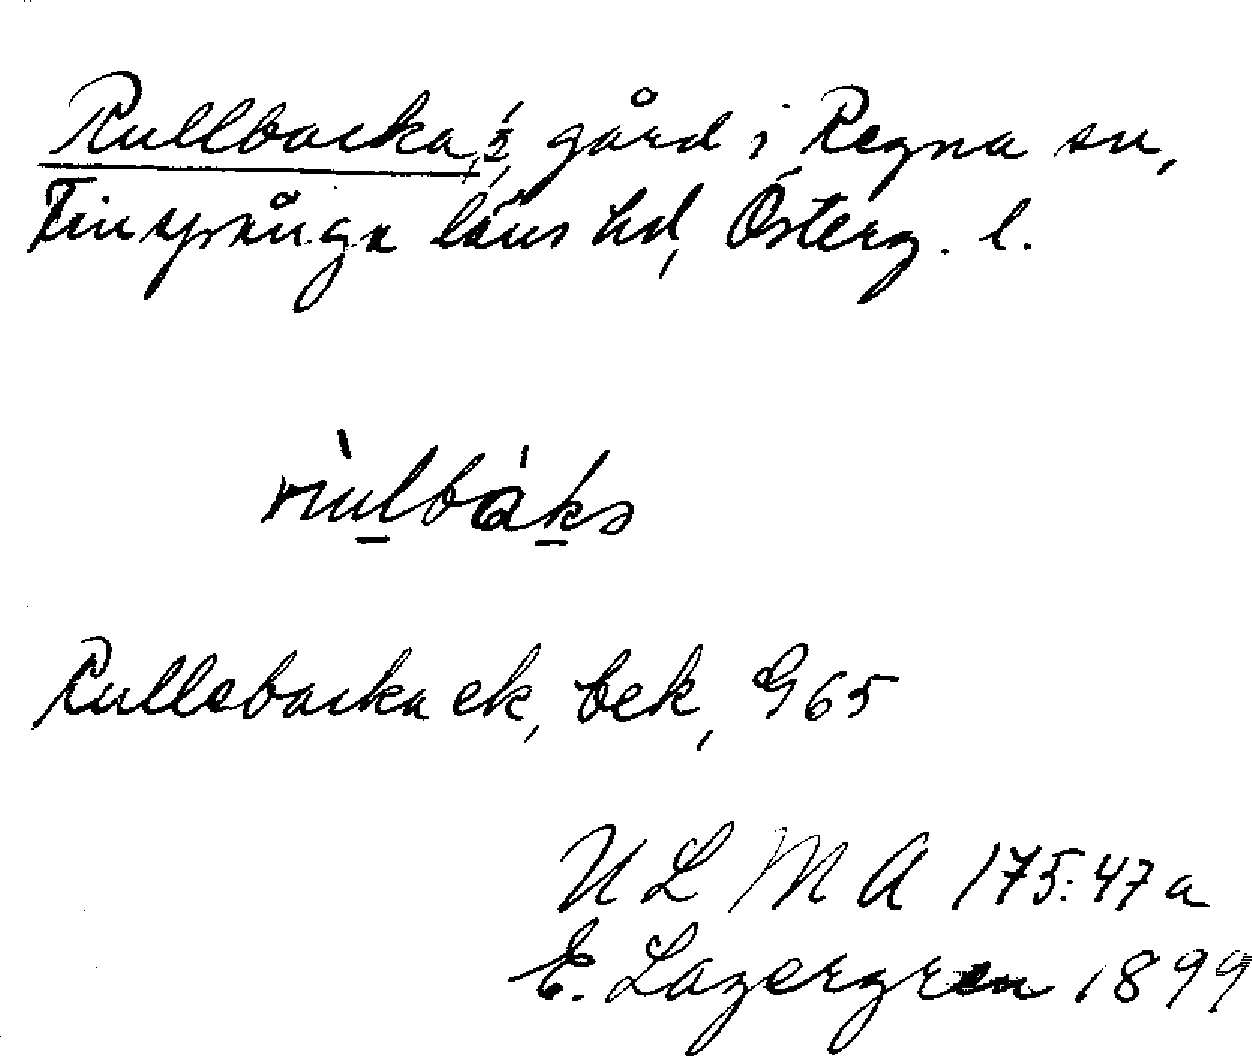 Rullbacka, ½, gård i Regna sn,
Finspånga läns hd, Österg. l.
Rullebacka ek, bek, G 65
ULMA 175:47a
E. Lagergren 1899